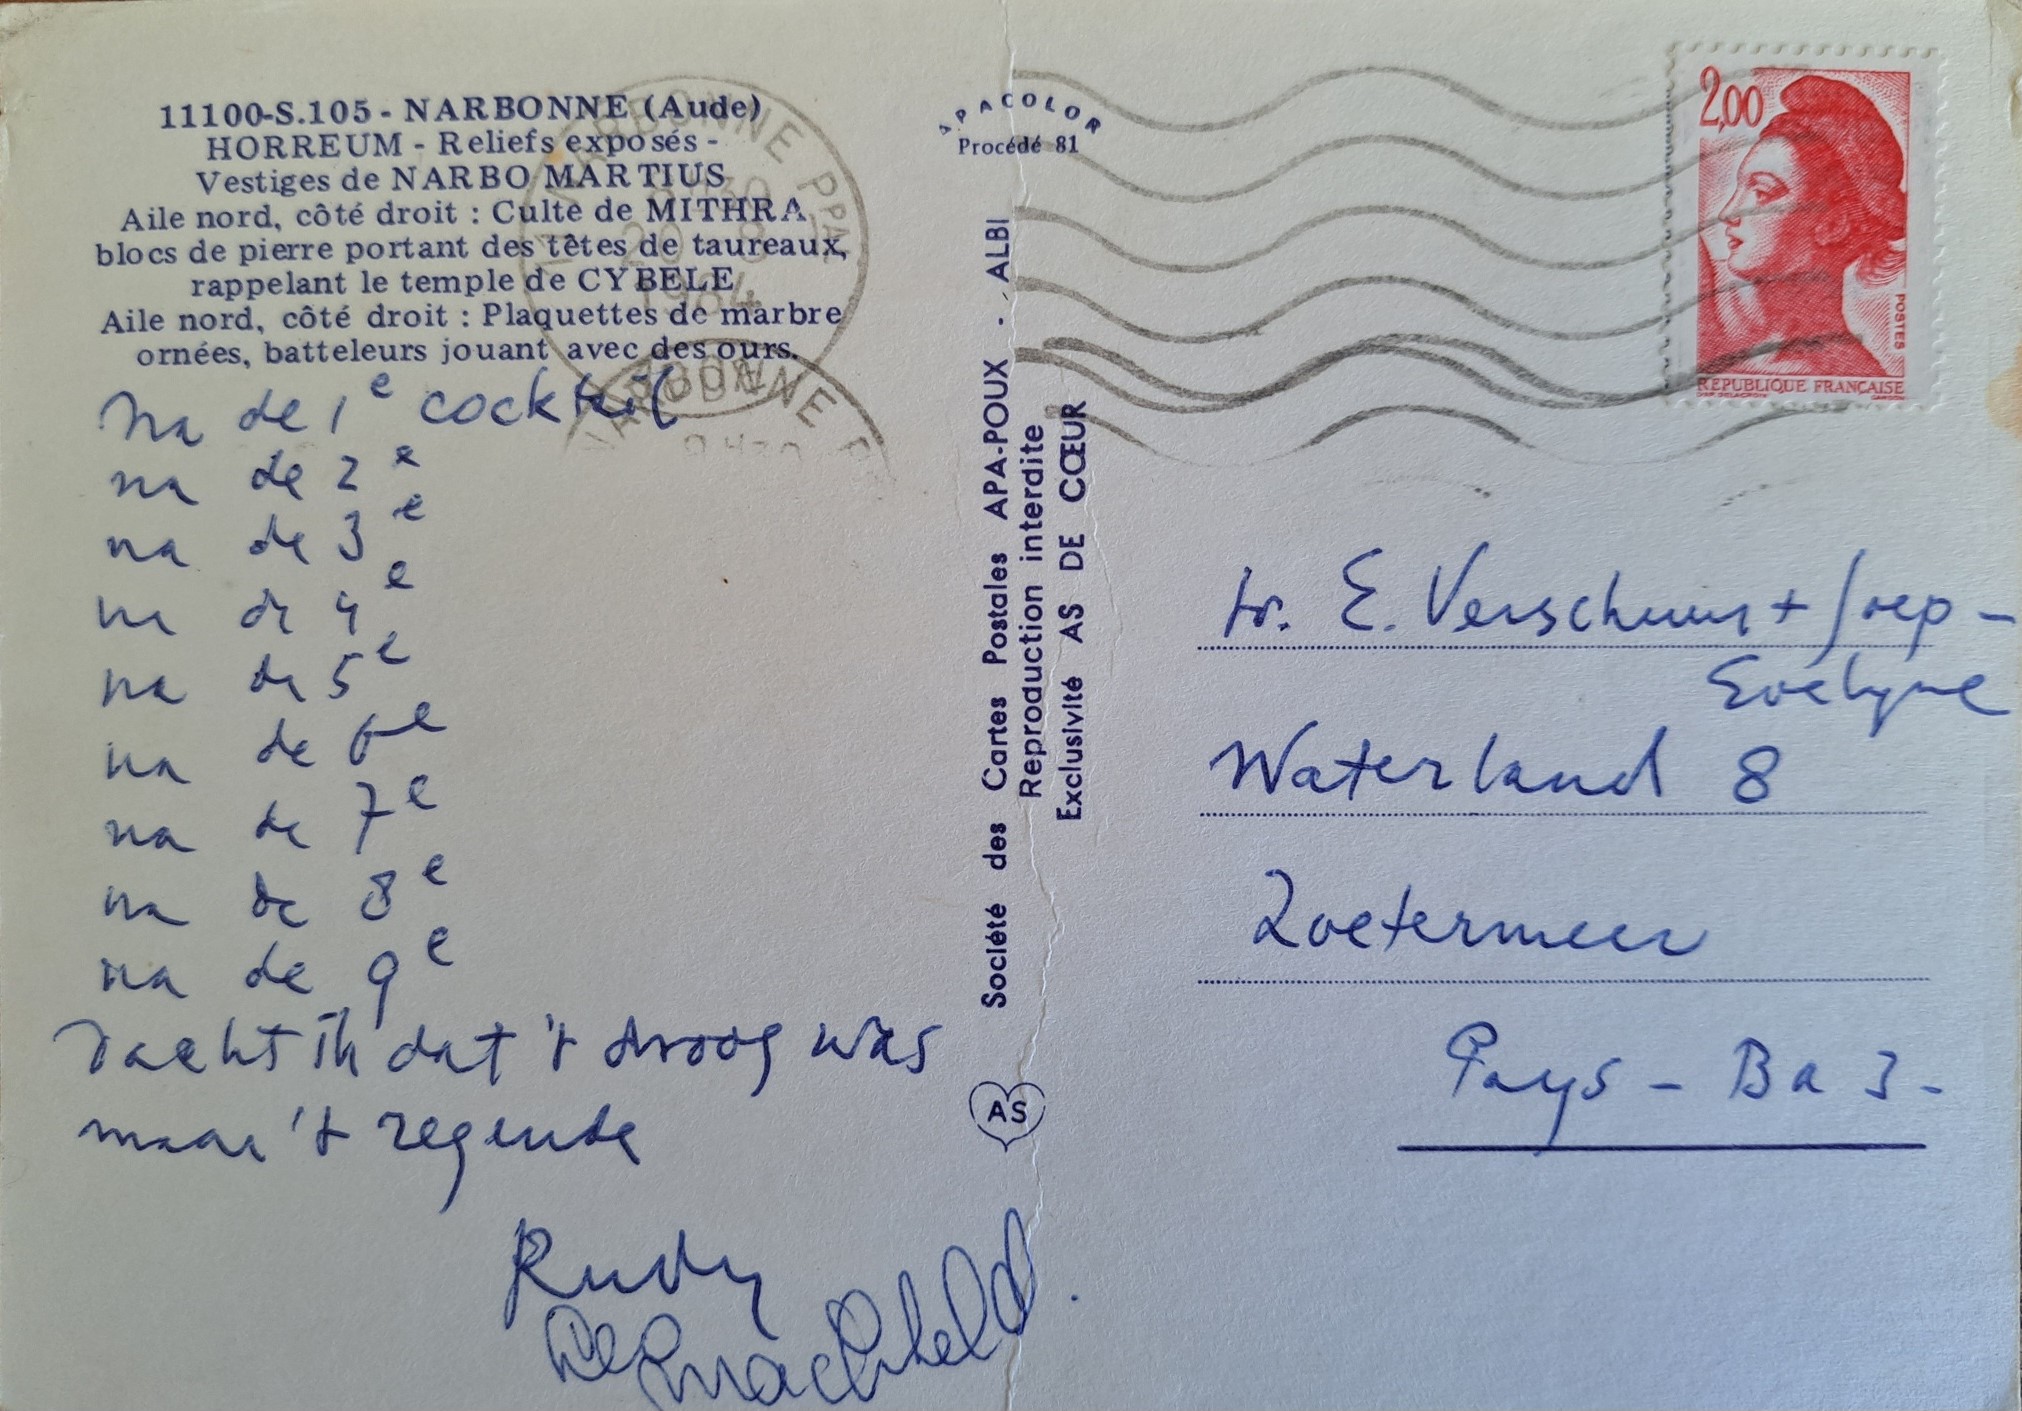 11100-S.105 - NARBONNE (Aude)
HORREUM - Reliefs exposés -
Vestiges de NARBO MARTIUS
Aile nord, côté droit : Culte de MITHRA
blocs de pierre portant des têtes de taureaux,
rappelant le temple de CYBELE
Aile nord, côté droit : Plaquettes de marbre
ornées, batteleurs jouant avec des ours.
NARBONNE PPAL
20 8
1984
AUDE
NARBONNE P
Na de 1e cocktail
na de 2e
na de 3e
na de 4e
na de 5e
na de 6e
na de 7e
na de 8e
na de 9e
dacht ik dat 't droog was
maar 't regende
Rudy
Machteld.
APACOLOR
Procédé 81
Société des Cartes Postales APA-POUX - ALBI
Reproduction interdite
Exclusivité AS DE CŒUR
AS
2,00
POSTES
REPUBLIQUE FRANÇAISE
DISP. DELACROIX GANDON
Fr. E. Verschuur + Joep -
Evelyne
Waterland 8
Zoetermeer
Pays - Bas -